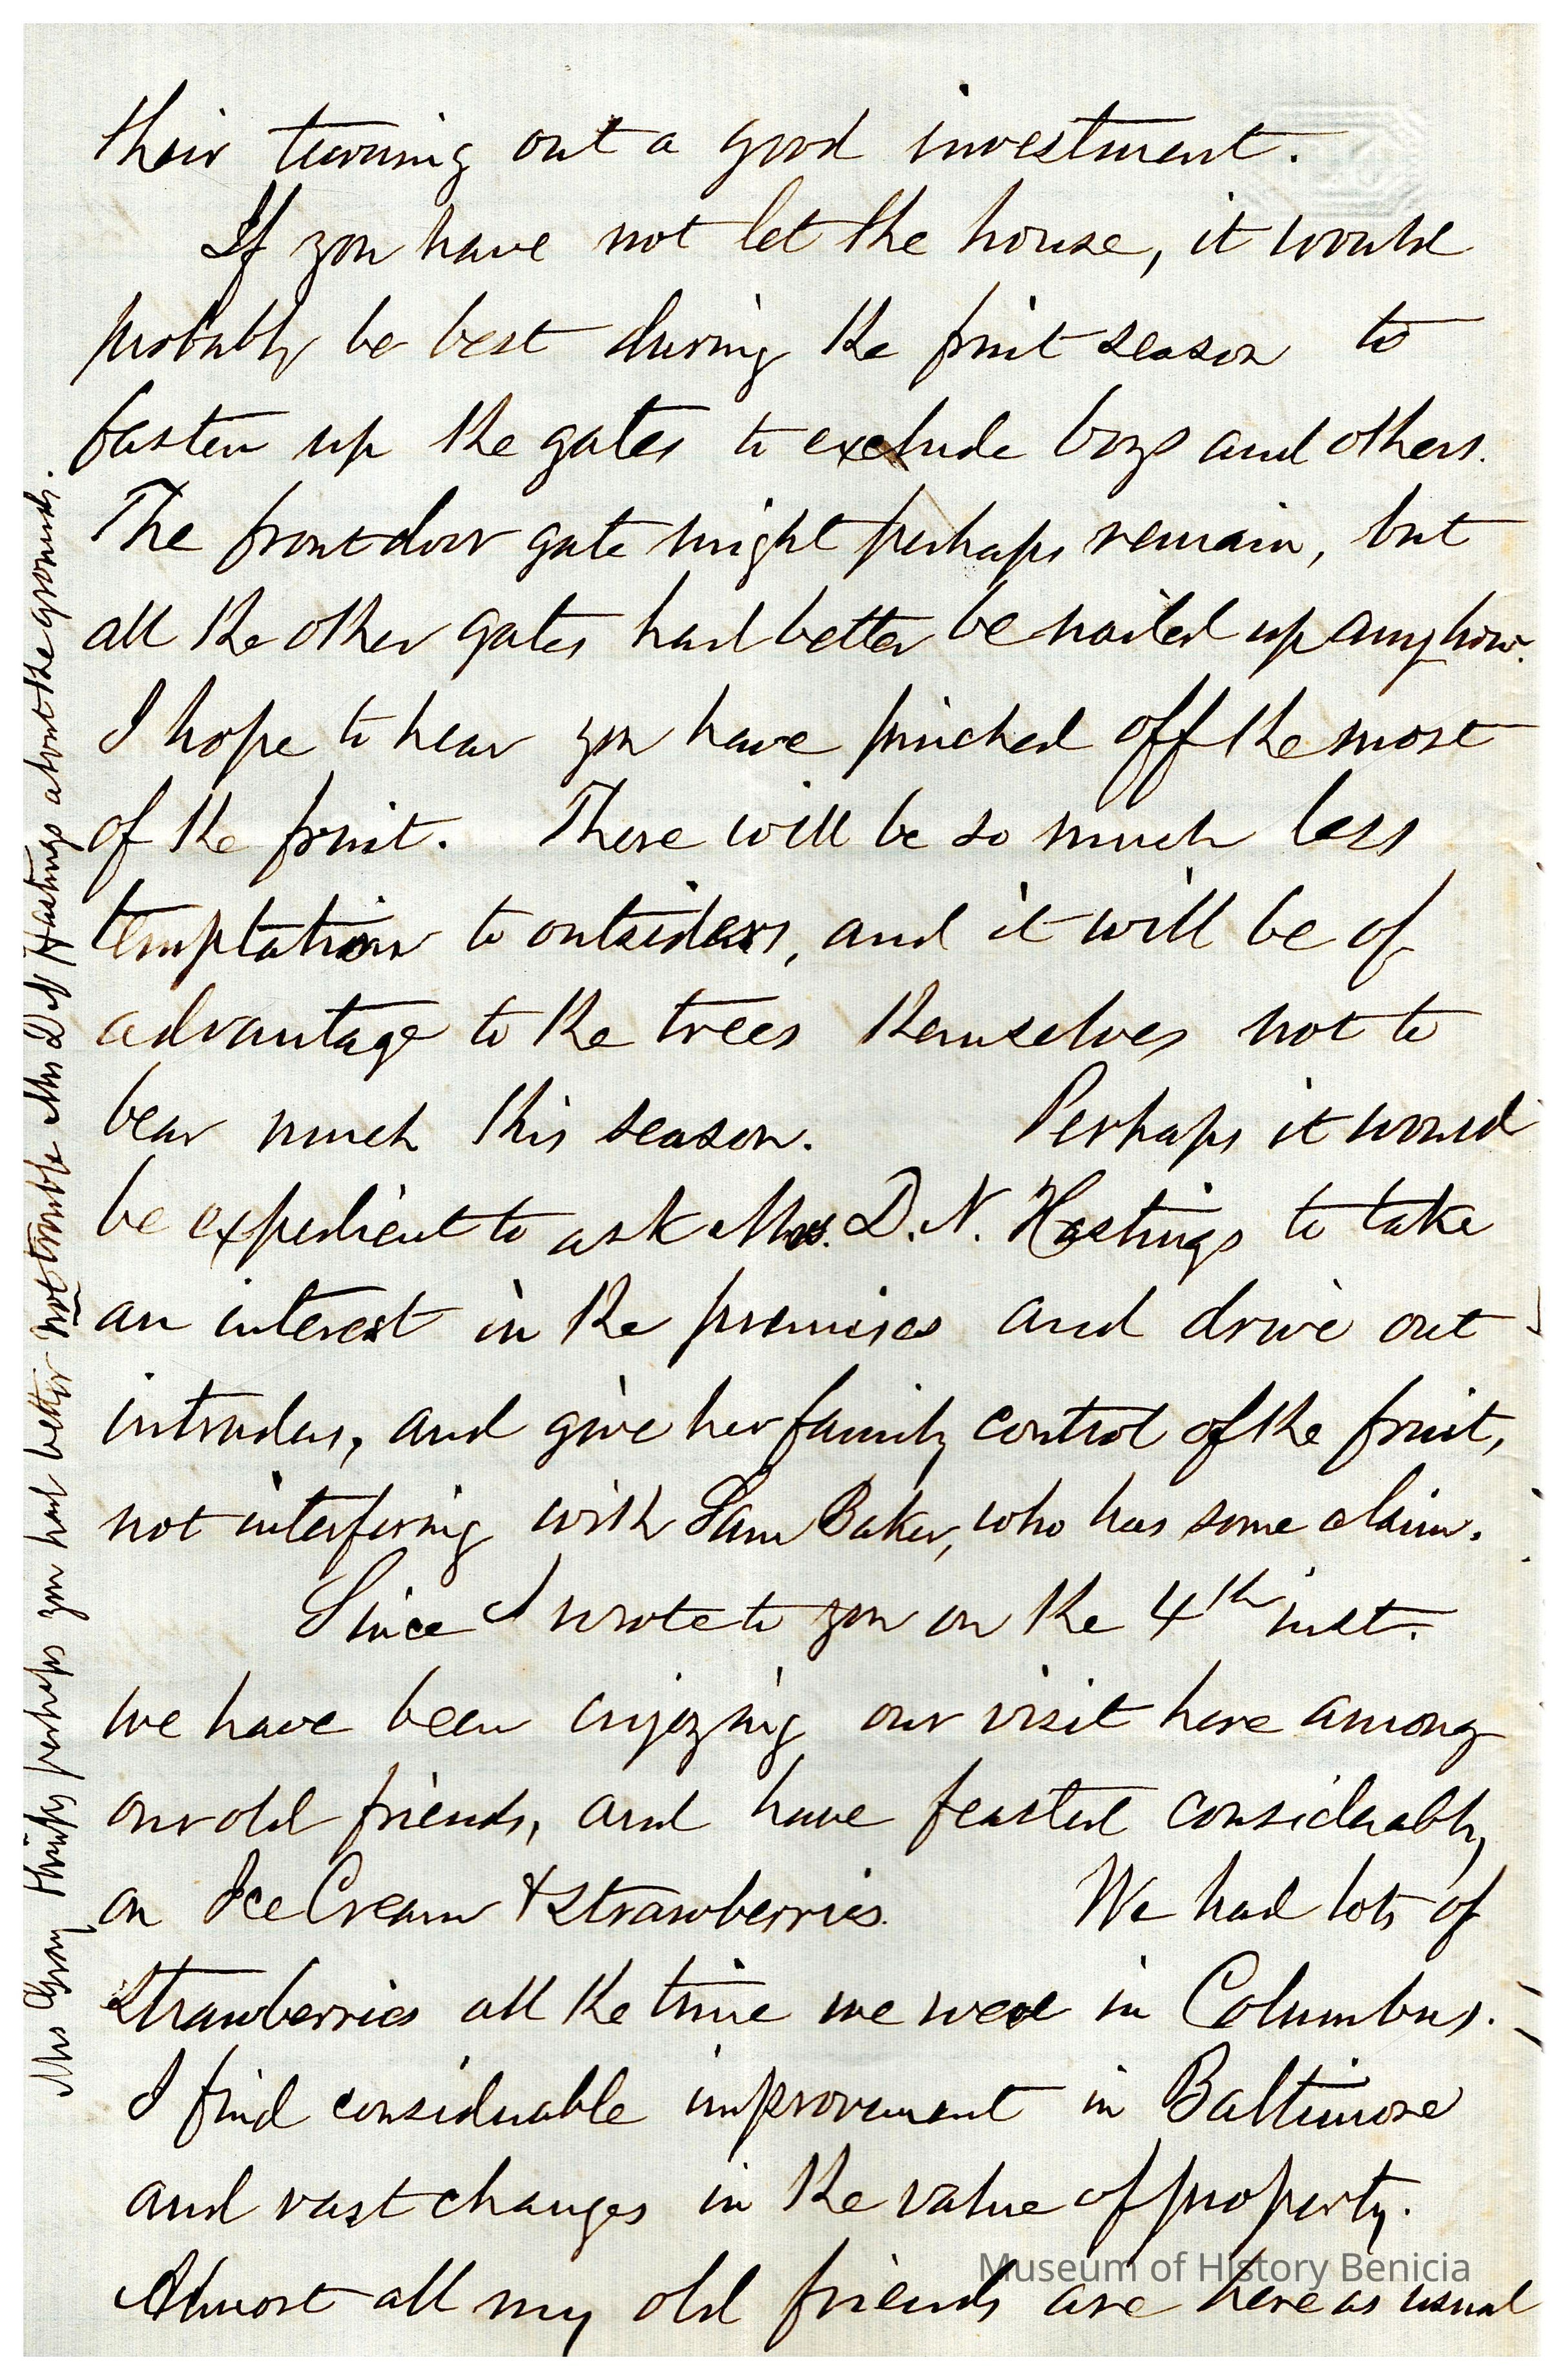 their turning out a good investment.
If you have not let the house, it would
probably be best during the fruit season to
fasten up the gates to exclude boys and others.
The front door gate might perhaps remain, but
all the other gates had better be nailed up anyhow.
I hope to hear you have pinched off the most
of the fruit. There will be so much less
temptation to outsiders, and it will be of
advantage to the trees themselves not to
bear much this season. Perhaps it would
be expedient to ask Mrs. D. N. Hastings to take
an interest in the premises and drive out
intruders, and give her family control of the fruit,
not interfering with Sam Baker, who has some claim.
Since I wrote to you on the 4th inst.
we have been enjoying our visit here among
our old friends, and have feasted considerably
on Ice Cream & Strawberries. We had lots of
Strawberries all the time we were in Columbus.
I find considerable improvement in Baltimore
and vast changes in the value of property.
Almost all my old friends are here as usual
Mrs Gray thinks perhaps you had better not trouble Mrs D N Hastings about the grounds.
Museum of History Benicia